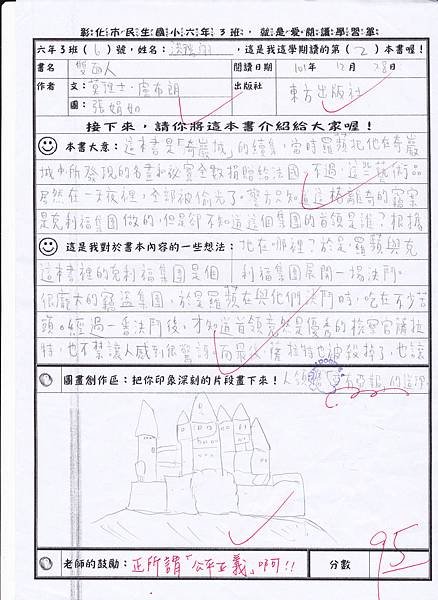 彰化市民生國小六年3班，就是愛閱讀學習單
六年3班(6)號，姓名：，這是我這學期讀的第(2)本書喔！
書名 雙面人 閱讀日期 101年12月28日
作者 文：莫理士．盧布朗 出版社 東方出版社
圖：張娟如
接下來，請你將這本書介紹給大家喔！
本書大意：這本書是「奇巖城」的續集，當時羅蘋把他在奇巖
城中所發現的名畫和祕寶全數捐贈給法國。不過，這些藝術品
居然在一夜裡，全部被偷光了。警方只知道這樁離奇的竊案
是克利福集團做的，但是卻不知道這個集團的首領是誰？根據
這是我對於書本內容的一些想法：地在哪裡？於是羅蘋與克
這本書裡的克利福集團是個 利福集團展開一場決鬥。
很龐大的竊盜集團，於是羅蘋在與他們決鬥時，吃在不少苦
頭。經過一番決鬥後，才知道首領竟然是優秀的檢察官薩拉
特，也不禁讓人感到很驚訝，而最後薩拉特也被殺掉了，也讓
圖畫創作區：把你印象深刻的片段畫下來！人領 惡報的道理。
老師的鼓勵：正所謂「公平正義」啊!! 分數 95